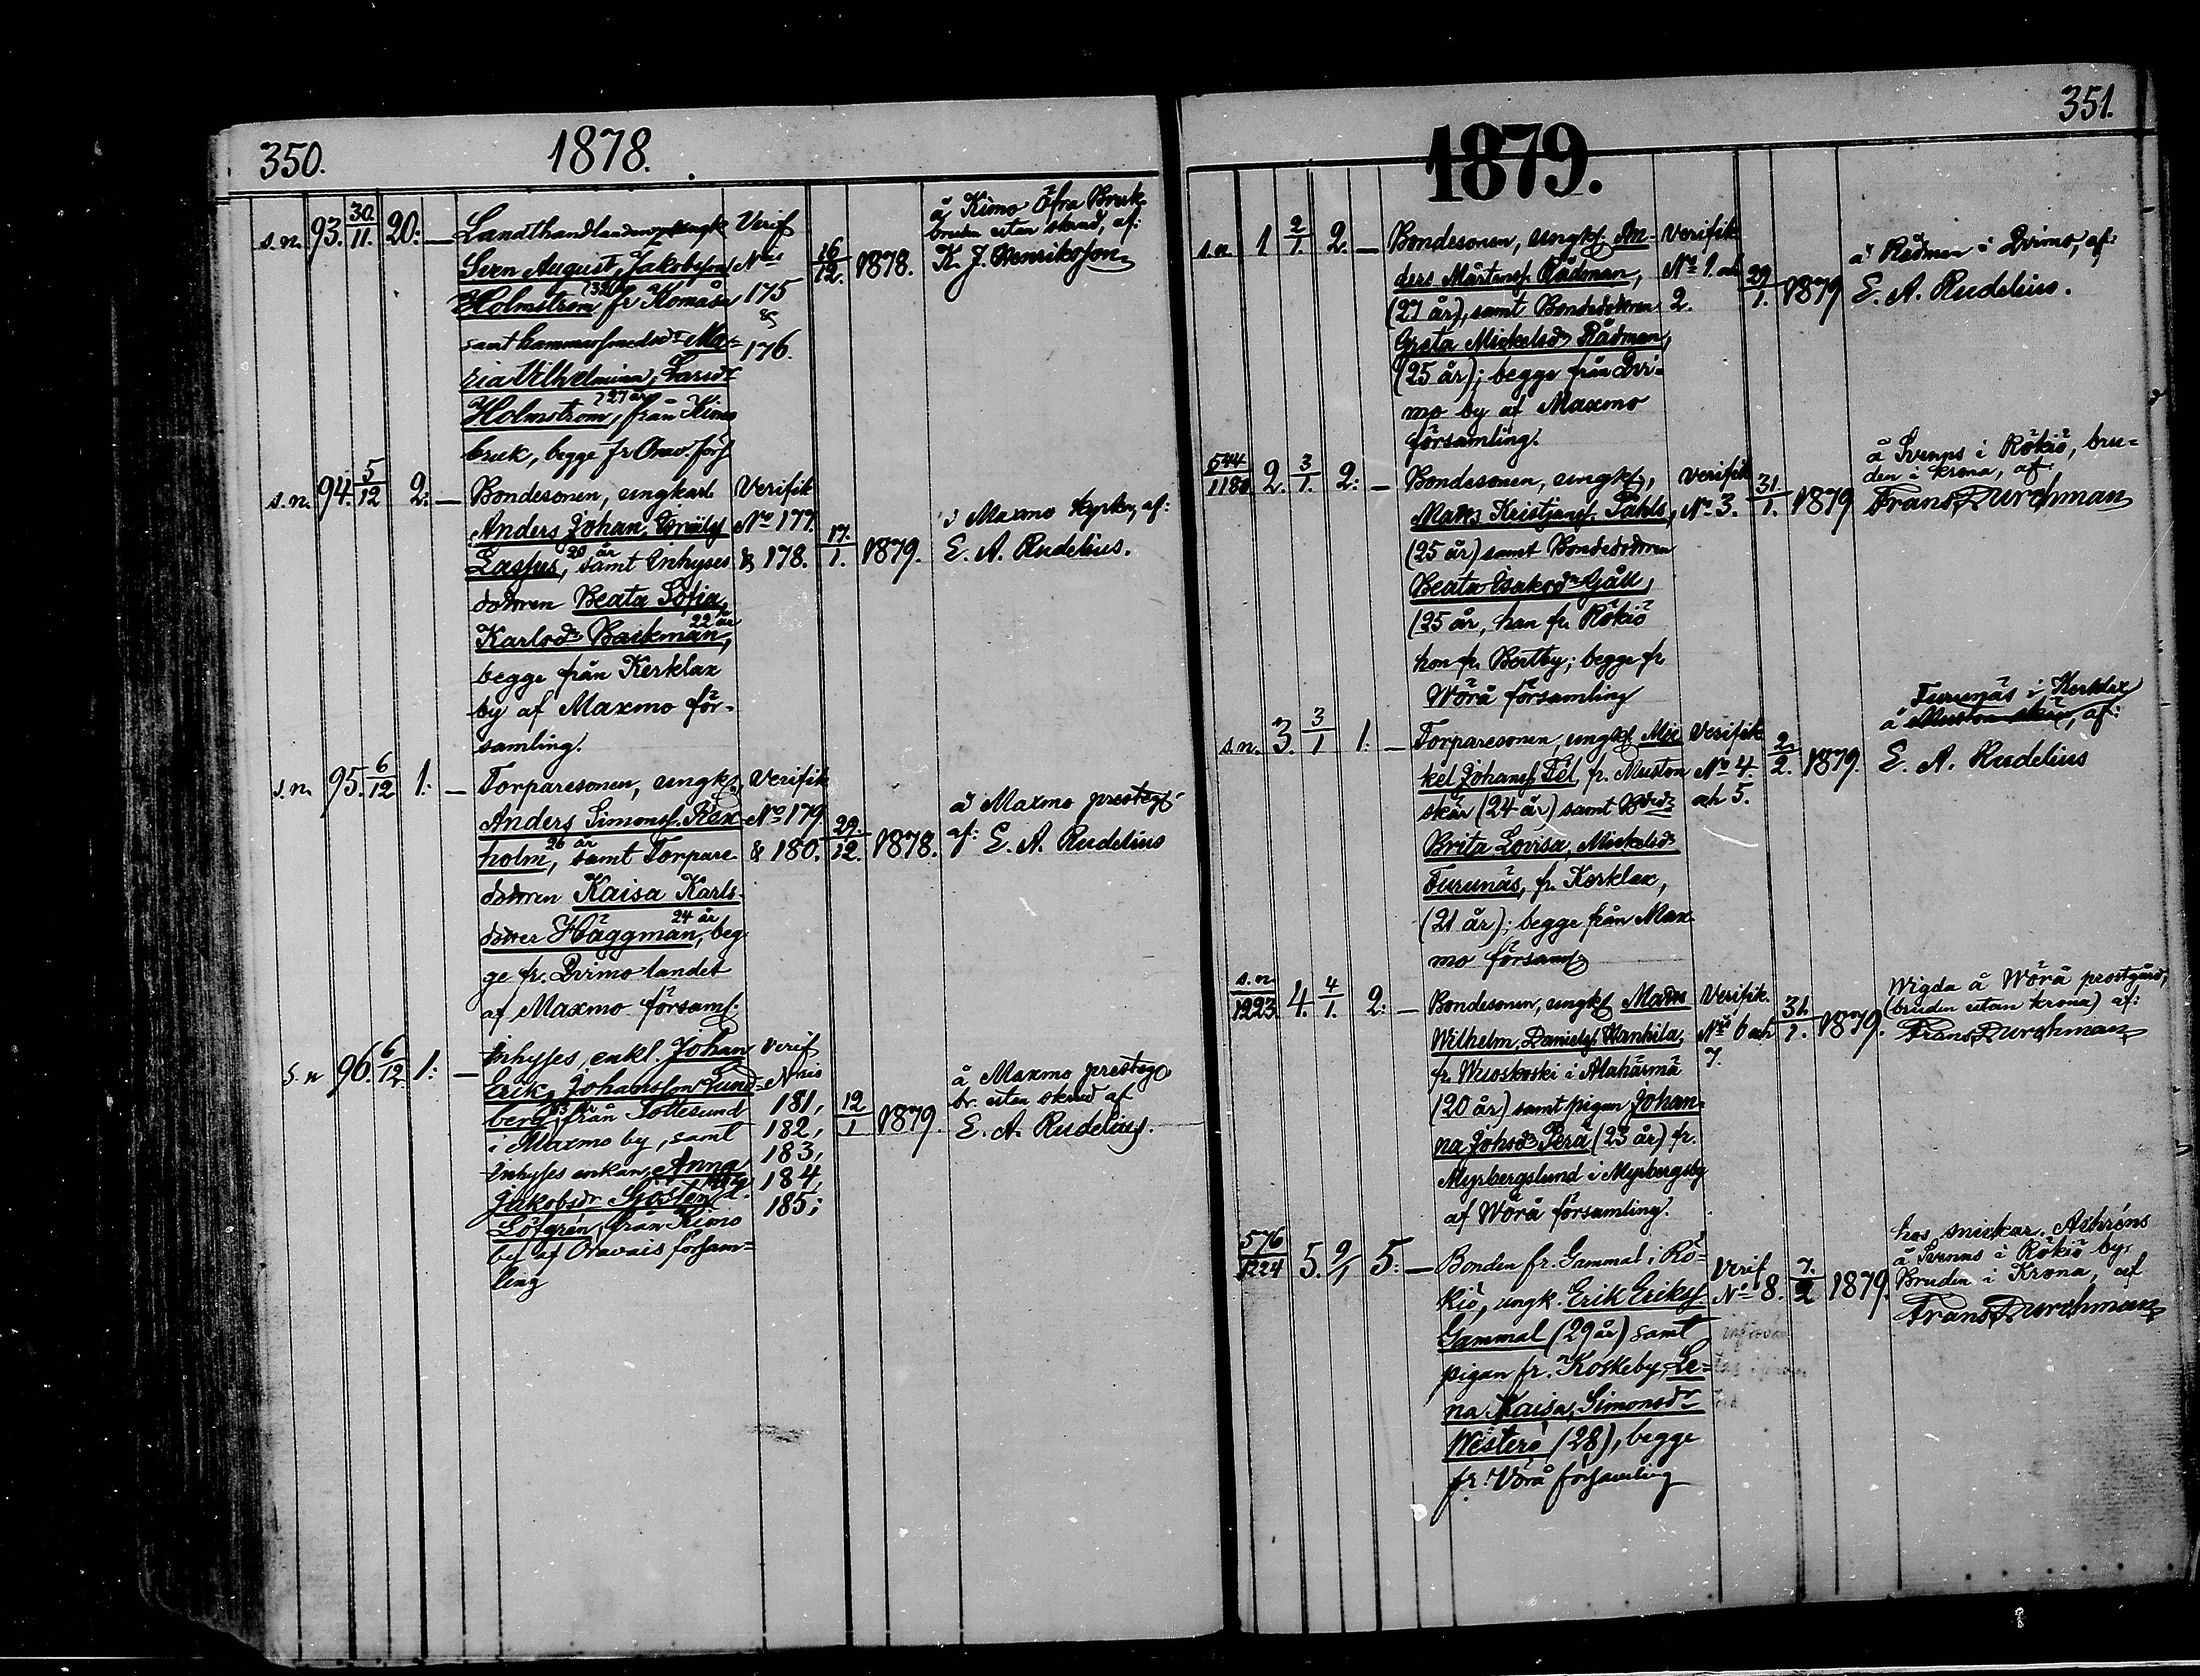 350.
1878.
s.n. 93. 30./11. 20: —
Landthandlanden, ungk
Sven August Jakobsson
Holmstrom fr Komåss
samt hammarsmedsdr Ma-
ria Vilhelmina Larsdr
Holmstrom, 27 år från Kimo
bruk, begge fr Orav. förs
Verif
Nris
175
&
176.
16/12. 1878.
å Kimo Öfra Bruk
bruden utan skrud, af:
K. J. Henriksson
s.n. 94. 5/12 2: —
Bondesonen, ungkarl
Anders Johan
Lassus, 20 år samt Inhyses
dottren Beata Sofia
Karlsdr Backman, 22 år
begge från Kerklax
by af Maxmo för-
samling.
Verifik
No 177.
& 178.
17./1. 1879.
i Maxmo kyrka, af:
E. A. Rudelius.
s.n. 95. 6/12 1: —
Torparesonen, ungk,
Anders Simonss. Rex-
holm, 26 år samt Torpare-
dottren Kaisa Karls-
dotter Häggman, 24 år beg-
ge fr. Österö landet
af Maxmo församl.
Verifik
No 179
& 180.
29./12. 1878.
å Maxmo prestg.
af: E. A. Rudelius
s.n 96. 6/12. 1: —
Inhyses enkl. Johan
Erik Johansson Lund-
berg från Tottesund
i Maxmo by, samt
Inhyses enkan Anna
Jakobsdr
Löfgrén, från Kimo
by af Oravais försam=
ling
Verif
Nris
181,
182,
183,
184,
185;
12/1 1879.
å Maxmo prestg.
br. utan skrud af
E. A. Rudelius.
351.
1879.
s.n. 1 2/1. 2. —
Bondesonen, ungkl. An-
ders Mårtenss. Rådman,
(27 år), samt Bondedottren
Greta Mickelsdr Rådman,
(25 år); begge från
mo by af Maxmo
församling.
Verifik
No 1. och
2.
29/1. 1879
å Rådman i af:
E. A. Rudelius.
544/1180. 2. 3/1. 2: —
Bondesonen, ungkl,
Matts Kristjanss. Påhls,
(25 år) samt Bondedottren
Beata Isaksdr Gåll,
(25 år, han fr. Rökiö
hon fr. Bertby; begge fr
Wörå församling
Verifik
No 3.
31./1. 1879
å Svenns i Rökiö, bru=
den i krona, af:
Frans Durchman
s.n. 3. 3/1 1: —
Torparesonen, ungkl. Mic-
kel Johanss. Tél, fr. Muston
skär (24 år) samt Bdr
Brita Lovisa, Mickelsdr
Turunäs, fr. Kerklax,
(21 år); begge från Max-
mo församl
Verifik
No 4.
och 5.
2./2. 1879.
Turunäs i Kerklax
å af:
E. A. Rudelius
s.n./1223. 4. 4/1. 2: —
Bondesonen, ungkl. Matts
Wilhelm, Daniels. Wanhila,
fr. Wuoskoski i Alahärmä
(20 år) samt pigan Johan-
na Johsdr Perä (23 år) fr.
Myrbergslund i Myrbergsby
af Wörå församling.
Verifik.
Nris 6 och
7.
31./1. 1879.
Wigda å Wörå prostgård,
(bruden utan krona) af:
Frans Durchman
576/1224 5. 9/1 5: —
Bonden fr. Gammal i Rö-
kiö, ungk. Erik Erikss.
Gammal (29 år) samt
pigan fr. Koskeby, Le=
na Kaisa, Simonsdr
Westerö (28), begge
fr. Vörå församling
Verif
No 8.
7./2 1879.
hos snickar.
å Svenns i Rökiö by,
Bruden i Krona, af
Frans Durchman